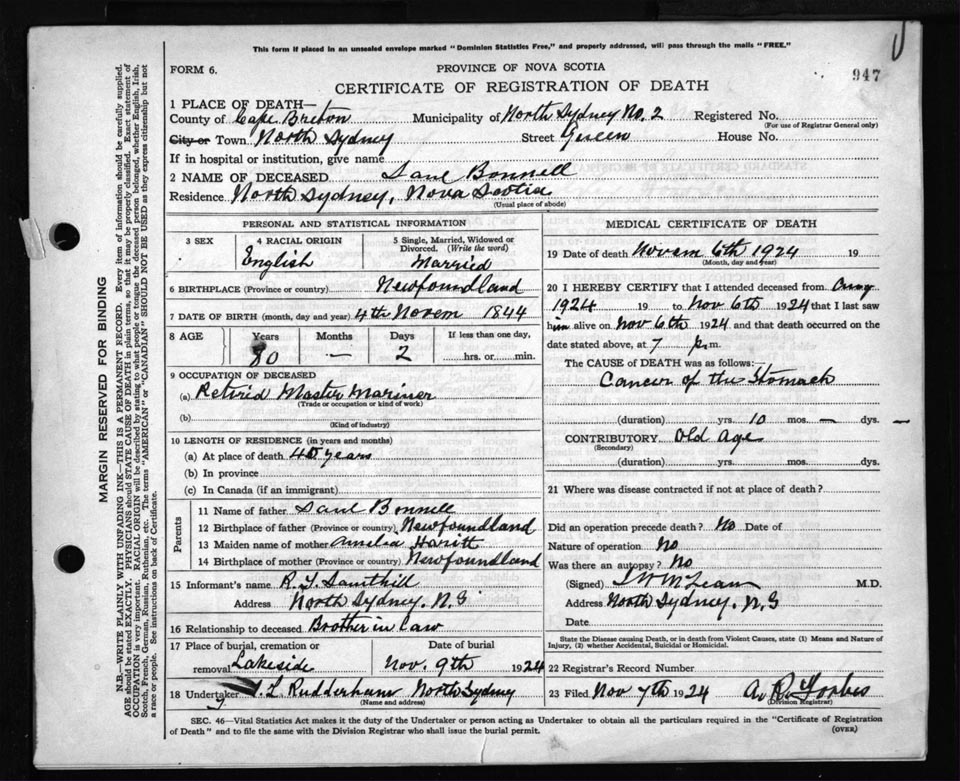 This form if placed in an unsealed envelope marked "Dominion Statistics Free," and properly addressed, will pass through the mails "FREE."
FORM 6.
PROVINCE OF NOVA SCOTIA
947
CERTIFICATE OF REGISTRATION OF DEATH
1 PLACE OF DEATH—
County of Cape Breton Municipality of North Sydney No. 2 Registered No.
(For use of Registrar General only)
City or Town North Sydney Street Queen House No.
If in hospital or institution, give name
2 NAME OF DECEASED Saul Bonnell
Residence North Sydney, Nova Scotia
(Usual place of abode)
PERSONAL AND STATISTICAL INFORMATION
3 SEX
4 RACIAL ORIGIN
English
5 Single, Married, Widowed or Divorced. (Write the word)
Married
6 BIRTHPLACE (Province or country) Newfoundland
7 DATE OF BIRTH (month, day and year) 4th Novem 1844
8 AGE Years Months Days If less than one day,
80 — 2 hrs. or min.
9 OCCUPATION OF DECEASED
(a) Retired Master Mariner
(Trade or occupation or kind of work)
(b)
(Kind of industry)
10 LENGTH OF RESIDENCE (in years and months)
(a) At place of death years
(b) In province
(c) In Canada (if an immigrant)
Parents
11 Name of father Saul Bonnell
12 Birthplace of father (Province or country) Newfoundland
13 Maiden name of mother Amelia
14 Birthplace of mother (Province or country) Newfoundland
15 Informant's name R.
Address North Sydney. N.S
16 Relationship to deceased Brother in law
17 Place of burial, cremation or removal Lakeside
Date of burial
Nov. 9th 1924
18 Undertaker L Rudderham North Sydney
(Name and address)
MEDICAL CERTIFICATE OF DEATH
19 Date of death Novem 6th 1924 19
(Month, day and year)
20 I HEREBY CERTIFY that I attended deceased from
1924 19 to Nov 6th 1924 that I last saw
him alive on Nov 6th 1924 and that death occurred on the
date stated above, at 7 p.m.
The CAUSE OF DEATH was as follows:
Cancer of the Stomach
(duration) yrs. 10 mos. — dys. —
CONTRIBUTORY Old Age
(Secondary)
(duration) yrs. mos. dys.
21 Where was disease contracted if not at place of death?
Did an operation precede death? No Date of
Nature of operation No
Was there an autopsy? No
(Signed) McLean M.D.
Address North Sydney. N.S
Date
State the Disease causing Death, or in death from Violent Causes, state (1) Means and Nature of
Injury, (2) whether Accidental, Suicidal or Homicidal.
22 Registrar's Record Number
23 Filed Nov 7th 1924 A. R. Forbes
(Division Registrar)
SEC. 46—Vital Statistics Act makes it the duty of the Undertaker or person acting as Undertaker to obtain all the particulars required in the "Certificate of Registration
of Death" and to file the same with the Division Registrar who shall issue the burial permit.
(OVER)
MARGIN RESERVED FOR BINDING
N.B.—WRITE PLAINLY WITH UNFADING INK—THIS IS A PERMANENT RECORD. Every item of information should be carefully supplied.
AGE should be stated EXACTLY. PHYSICIANS should STATE CAUSE OF DEATH in plain terms, so that it may be properly classified. Exact statement of
OCCUPATION is very important. RACIAL ORIGIN will be described by stating to what people or tongue the deceased person belonged, whether English, Irish,
Scotch, French, German, Russian, Ruthenian, etc. The terms "AMERICAN" or "CANADIAN" SHOULD NOT BE USED as they express citizenship but not
a race or people. See instructions on back of Certificate.